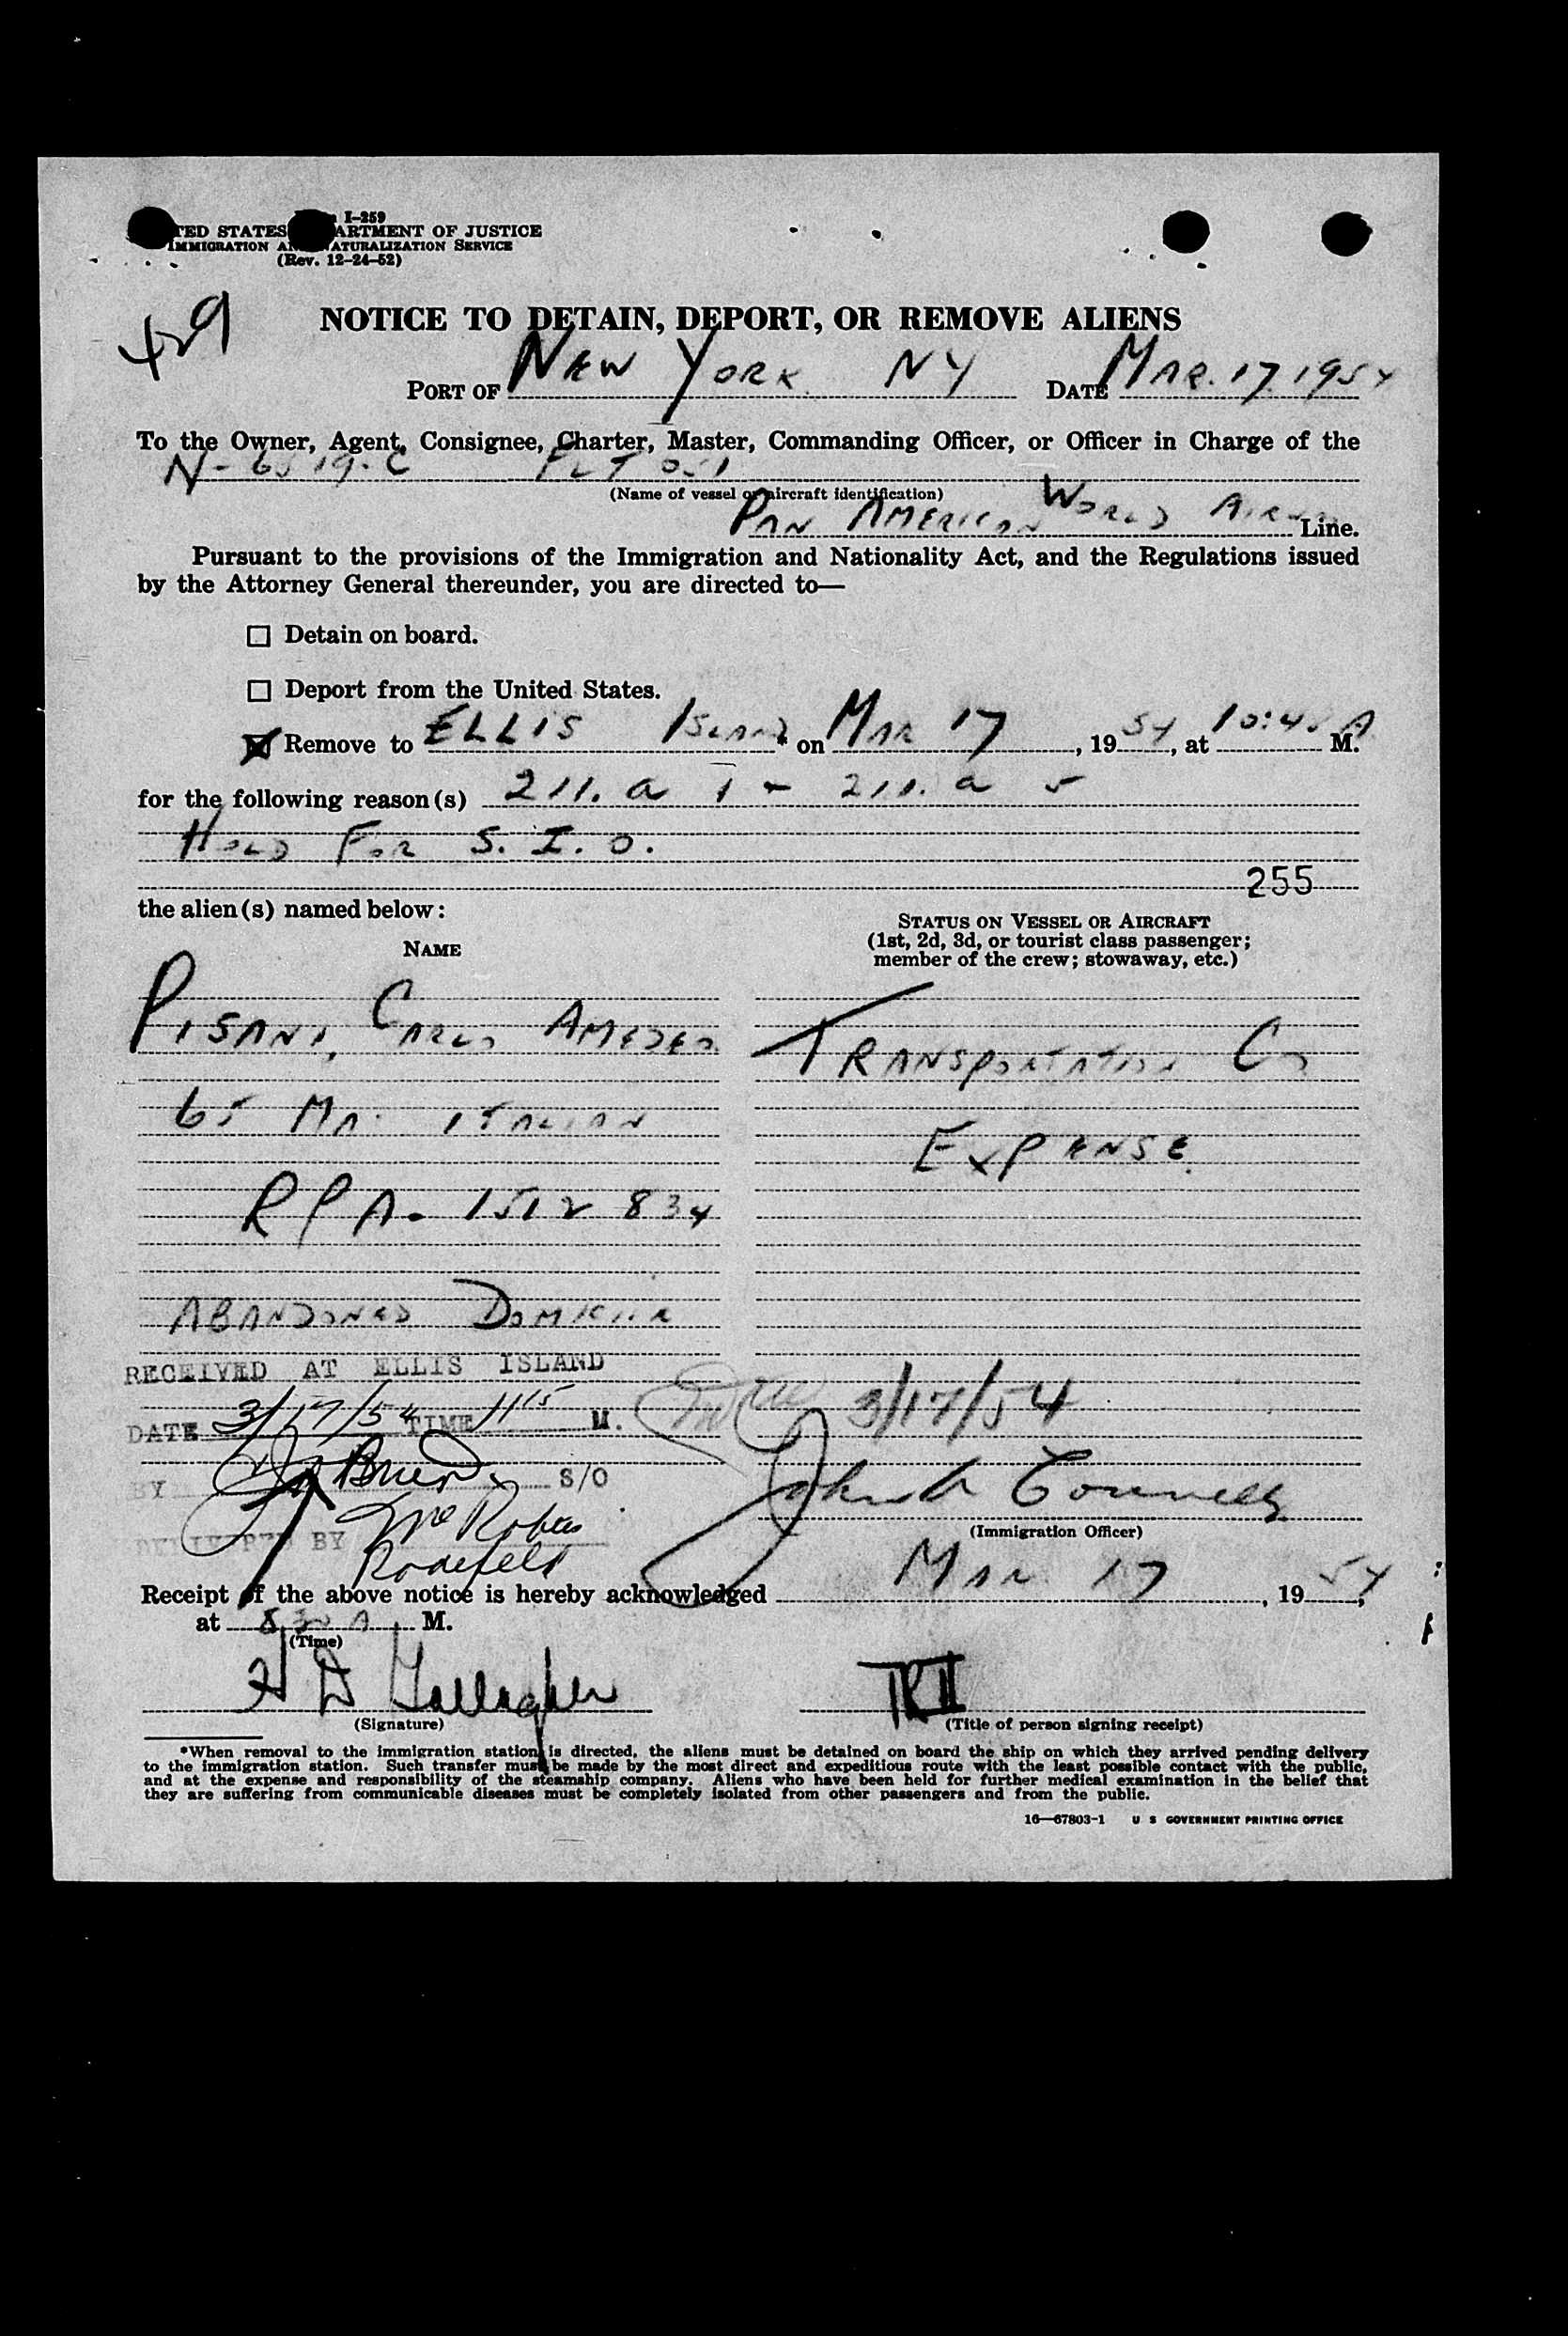 I-259
TED STATES ARTMENT OF JUSTICE
IMMIGRATION AN NATURALIZATION SERVICE
(Rev. 12-24-52)
49
NOTICE TO DETAIN, DEPORT, OR REMOVE ALIENS
PORT OF NEW YORK NY DATE MAR. 17. 1954
To the Owner, Agent, Consignee, Charter, Master, Commanding Officer, or Officer in Charge of the
N-6519-C FLT 051
(Name of vessel or aircraft identification)
PAN AMERICAN WORLD Line.
Pursuant to the provisions of the Immigration and Nationality Act, and the Regulations issued
by the Attorney General thereunder, you are directed to—
Detain on board.
Deport from the United States.
Remove to ELLIS ISLAND * on MAR 17, 1954, at 10:4 A M.
for the following reason(s) 211. a 1 - 211. a 5
HOLD FOR S. I. O.
255
the alien(s) named below:
STATUS ON VESSEL OR AIRCRAFT
NAME
(1st, 2d, 3d, or tourist class passenger;
member of the crew; stowaway, etc.)
PISANI, CARLO AMEDEO
TRANSPORTATION CO
65 MA. ITALIAN
EXPENSE.
RPA. 1512 834
ABANDONED DOMICILE
RECEIVED AT ELLIS ISLAND
DATE 3/17/54 TIME 11 15 M.
3/17/54
BY O'Brien S/O
John A Connelly
(Immigration Officer)
BY McRobes
Receipt of the above notice is hereby acknowledged MAR 17, 1954,
at 8 30 A M.
(Time)
H D Gallagher
TR II
(Signature)
(Title of person signing receipt)
*When removal to the immigration station is directed, the aliens must be detained on board the ship on which they arrived pending delivery
to the immigration station. Such transfer must be made by the most direct and expeditious route with the least possible contact with the public,
and at the expense and responsibility of the steamship company. Aliens who have been held for further medical examination in the belief that
they are suffering from communicable diseases must be completely isolated from other passengers and from the public.
16—67803-1 U S GOVERNMENT PRINTING OFFICE